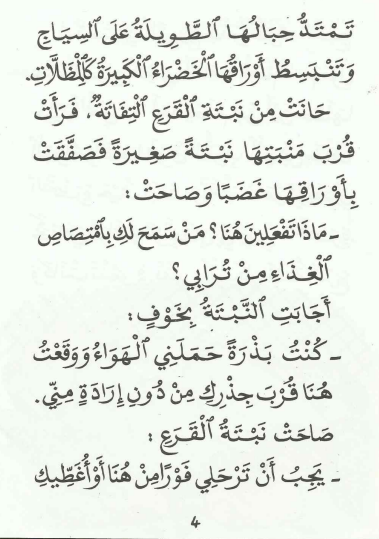 تَمْتَدُّ حِبَالُهَا الطَّوِيلَةُ عَلَى السِيَاجِ
وَتَنْبَسِطُ أَوْرَاقُهَا الْخَضْرَاءُ الْكَبِيرَةُ كَالْمِظَلَّاتِ.
حَانَتْ مِنْ نَبْتَةِ الْقَرَعِ الْتِفَاتَةٌ، فَرَأَتْ
قُرْبَ مَنْبَتِهَا نَبْتَةً صَغِيرَةً فَصَفَّقَتْ
بِأَوْرَاقِهَا غَضَبًا وَصَاحَتْ :
ـ مَاذَا تَفْعَلِينَ هُنَا؟ مَنْ سَمَحَ لَكِ بِامْتِصَاصِ
الْغِذَاءِ مِنْ تُرَابِي؟
أَجَابَتِ النَّبْتَةُ بِخَوْفٍ :
ـ كُنْتُ بَذْرَةً حَمَلَنِي الْهَوَاءُ وَوَقَعْتُ
هُنَا قُرْبَ جِذْرِكِ مِنْ دُونِ إِرَادَةٍ مِنِّي.
صَاحَتْ نَبْتَةُ الْقَرَعِ :
ـ يَجِبُ أَنْ تَرْحَلِي فَوْرًا مِنْ هُنَا أَوْ أُغَطِّيكِ
4